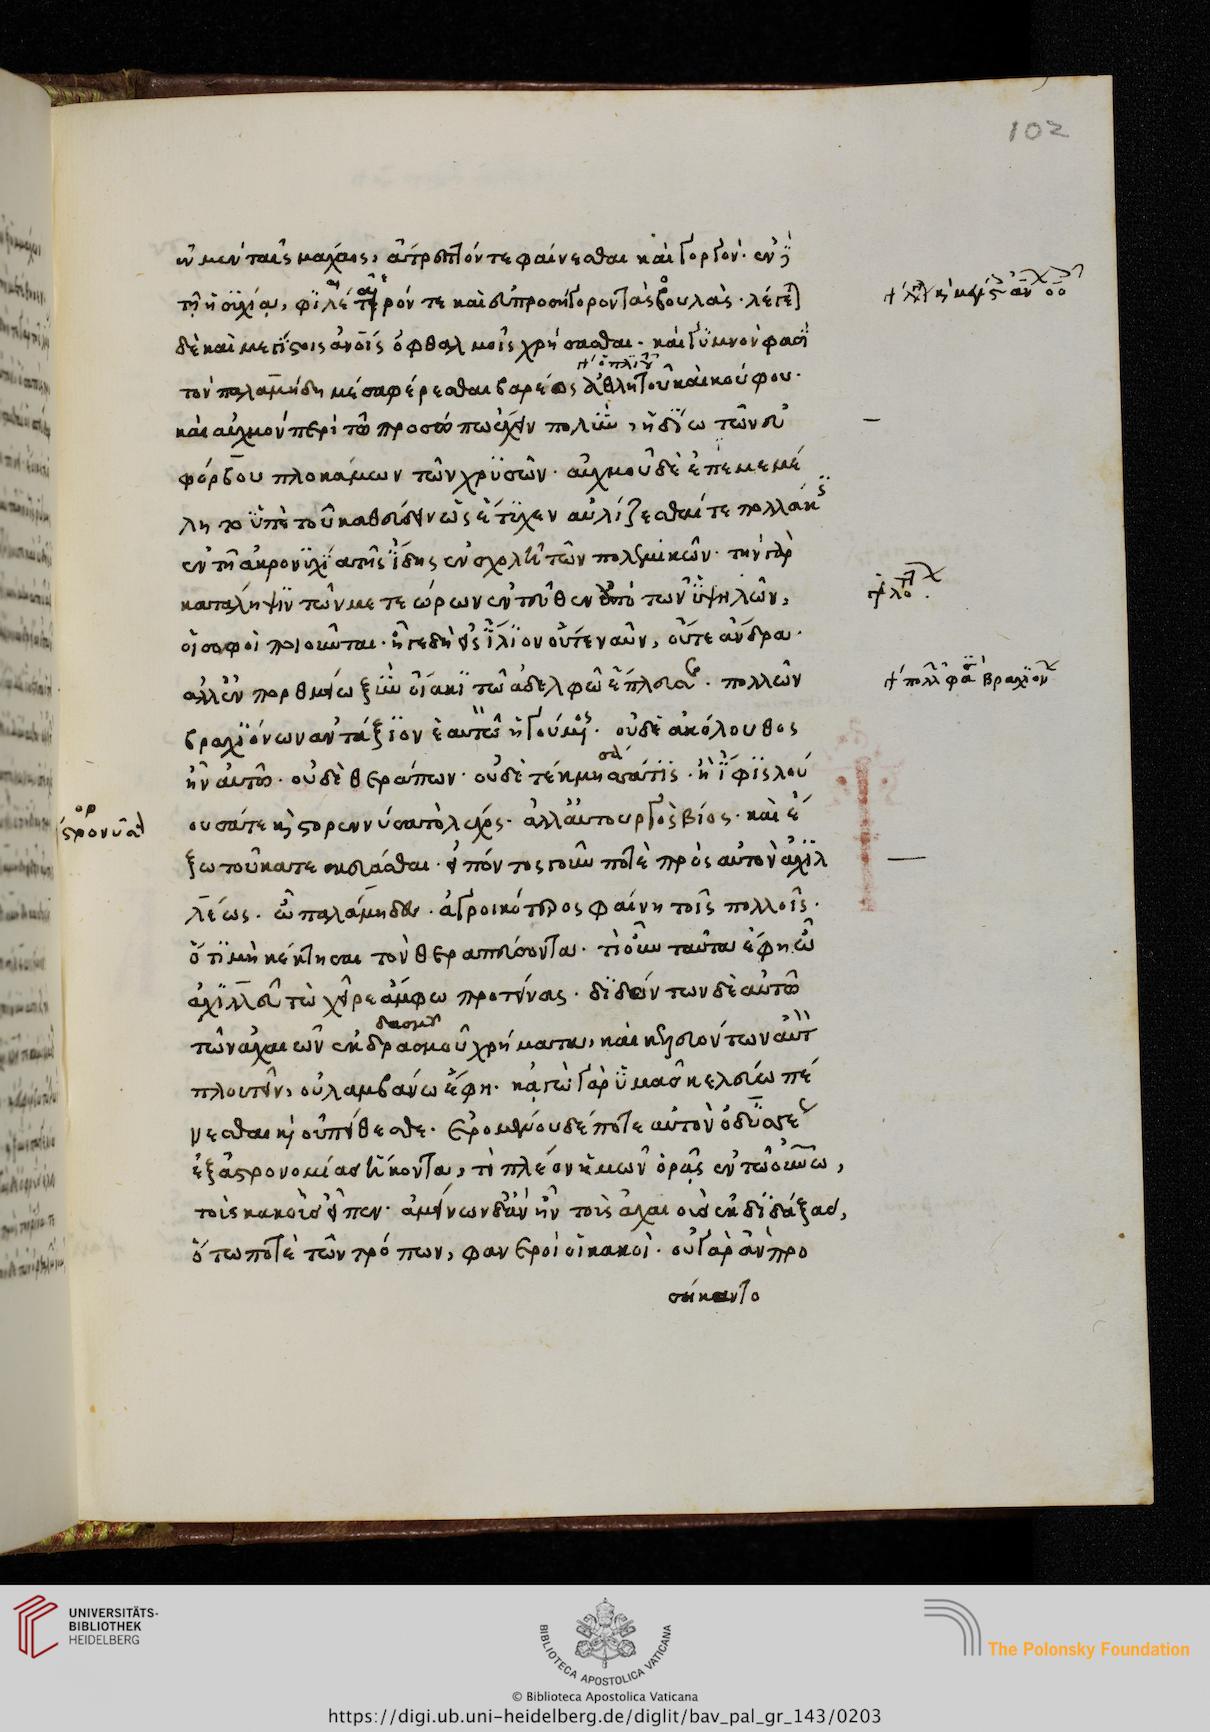 102
ἐν μὲν ταῖς μάχαις, ἄτρεπτόν τε φαίνεσθαι καὶ γοργόν. ἐν
τῇ ἡσυχίᾳ, φιλέταιρόν τε καὶ εὐπροσήγορον τὰς βουλάς. λέγεται
δὲ καὶ μεγίστοις ὀφθαλμοῖς χρήσασθαι. καὶ γυμνὸν φασὶ
τὸν παλαμήδη μέσα φέρεσθαι βαρέος ἀθλητοῦ καὶ κούφου.
καὶ αὐχμὸν περὶ τῷ προσώπῳ ἔχειν πολὺν, ἡδίω τῶν εὐ
φόρβου πλοκάμων τῶν χρυσῶν. αὐχμοῦ δὲ ἐπεμεμέ
λητο ὑπὸ τοῦ καθεύδειν ὡς ἔτυχεν αὐλίζεσθαί τε πολλάκις
ἐν τῇ ἀκρονυχίᾳ τῆς ἴδης ἐν σχολῇ τῶν πολεμικῶν. τὴν γὰρ
κατάληψιν τῶν μετεώρων ἐντεῦθεν ἀπὸ τῶν ὑψηλῶν,
οἱ σοφοὶ ποιοῦνται. ἦγε δὴ ἐς ἴλιον οὔτε ναῦν, οὔτε ἄνδρα.
ἀλλ' ἐν πορθμείῳ ξὺν οἴακι τῷ ἀδελφῷ ἔπλευσε. πολλῶν
βραχιόνων ἀντάξιον ἑαυτὸν ἡγούμενος. οὐδὲ ἀκόλουθος
ἦν αὐτῷ. οὐδὲ θεράπων. οὐδὲ τέκμησσά τις. ἢ ἶφις λού
ουσά τε καὶ στορεννύσα τὸ λέχος. ἀλλ' αὐτουργὸς βίος. καὶ ἔ
ξω τοῦ κατεσκευάσθαι. εἰπόντος γοῦν ποτὲ πρὸς αὐτὸν ἀχιλ
λέως. ὦ παλάμηδες. ἀγροικότερος φαίνῃ τοῖς πολλοῖς.
ὅτι μὴ κέκτησαι τὸν θεραπεύσοντα. τί οὖν ταῦτα ἔφη ὦ
ἀχιλλεῦ τὼ χεῖρε ἄμφω προτείνας. διδόντων δὲ αὐτῷ
τῶν ἀχαιῶν ἐκ δρασμοῦ χρήματα, καὶ κελευόντων αὐτὸν
δασμοῦ
πλουτεῖν, οὐ λαμβάνω ἔφη. κἀγὼ γὰρ ὑμᾶς κελεύω πέ
νεσθαι καὶ οὐ πείθεσθε. ἐρομένου δέ ποτε αὐτὸν ὀδυσσέως
ἐξ ἀστρονομίας ἥκοντα, τί πλέον ἡμῶν ὁρᾷς ἐν τῷ οὐρανῷ,
τοὺς κακοὺς εἶπεν. ἀμείνων δ' ἂν ἦν τοὺς ἀχαιοὺς ἐκδιδάξας,
ὅτῳ ποτὲ τῶν τρόπων, φανεροὶ οἱ κακοί. οὐ γὰρ ἂν προ
σήκαντο
UNIVERSITÄTS-
BIBLIOTHEK
HEIDELBERG
BIBLIOTECA APOSTOLICA VATICANA
The Polonsky Foundation
© Biblioteca Apostolica Vaticana
https://digi.ub.uni-heidelberg.de/diglit/bav_pal_gr_143/0203